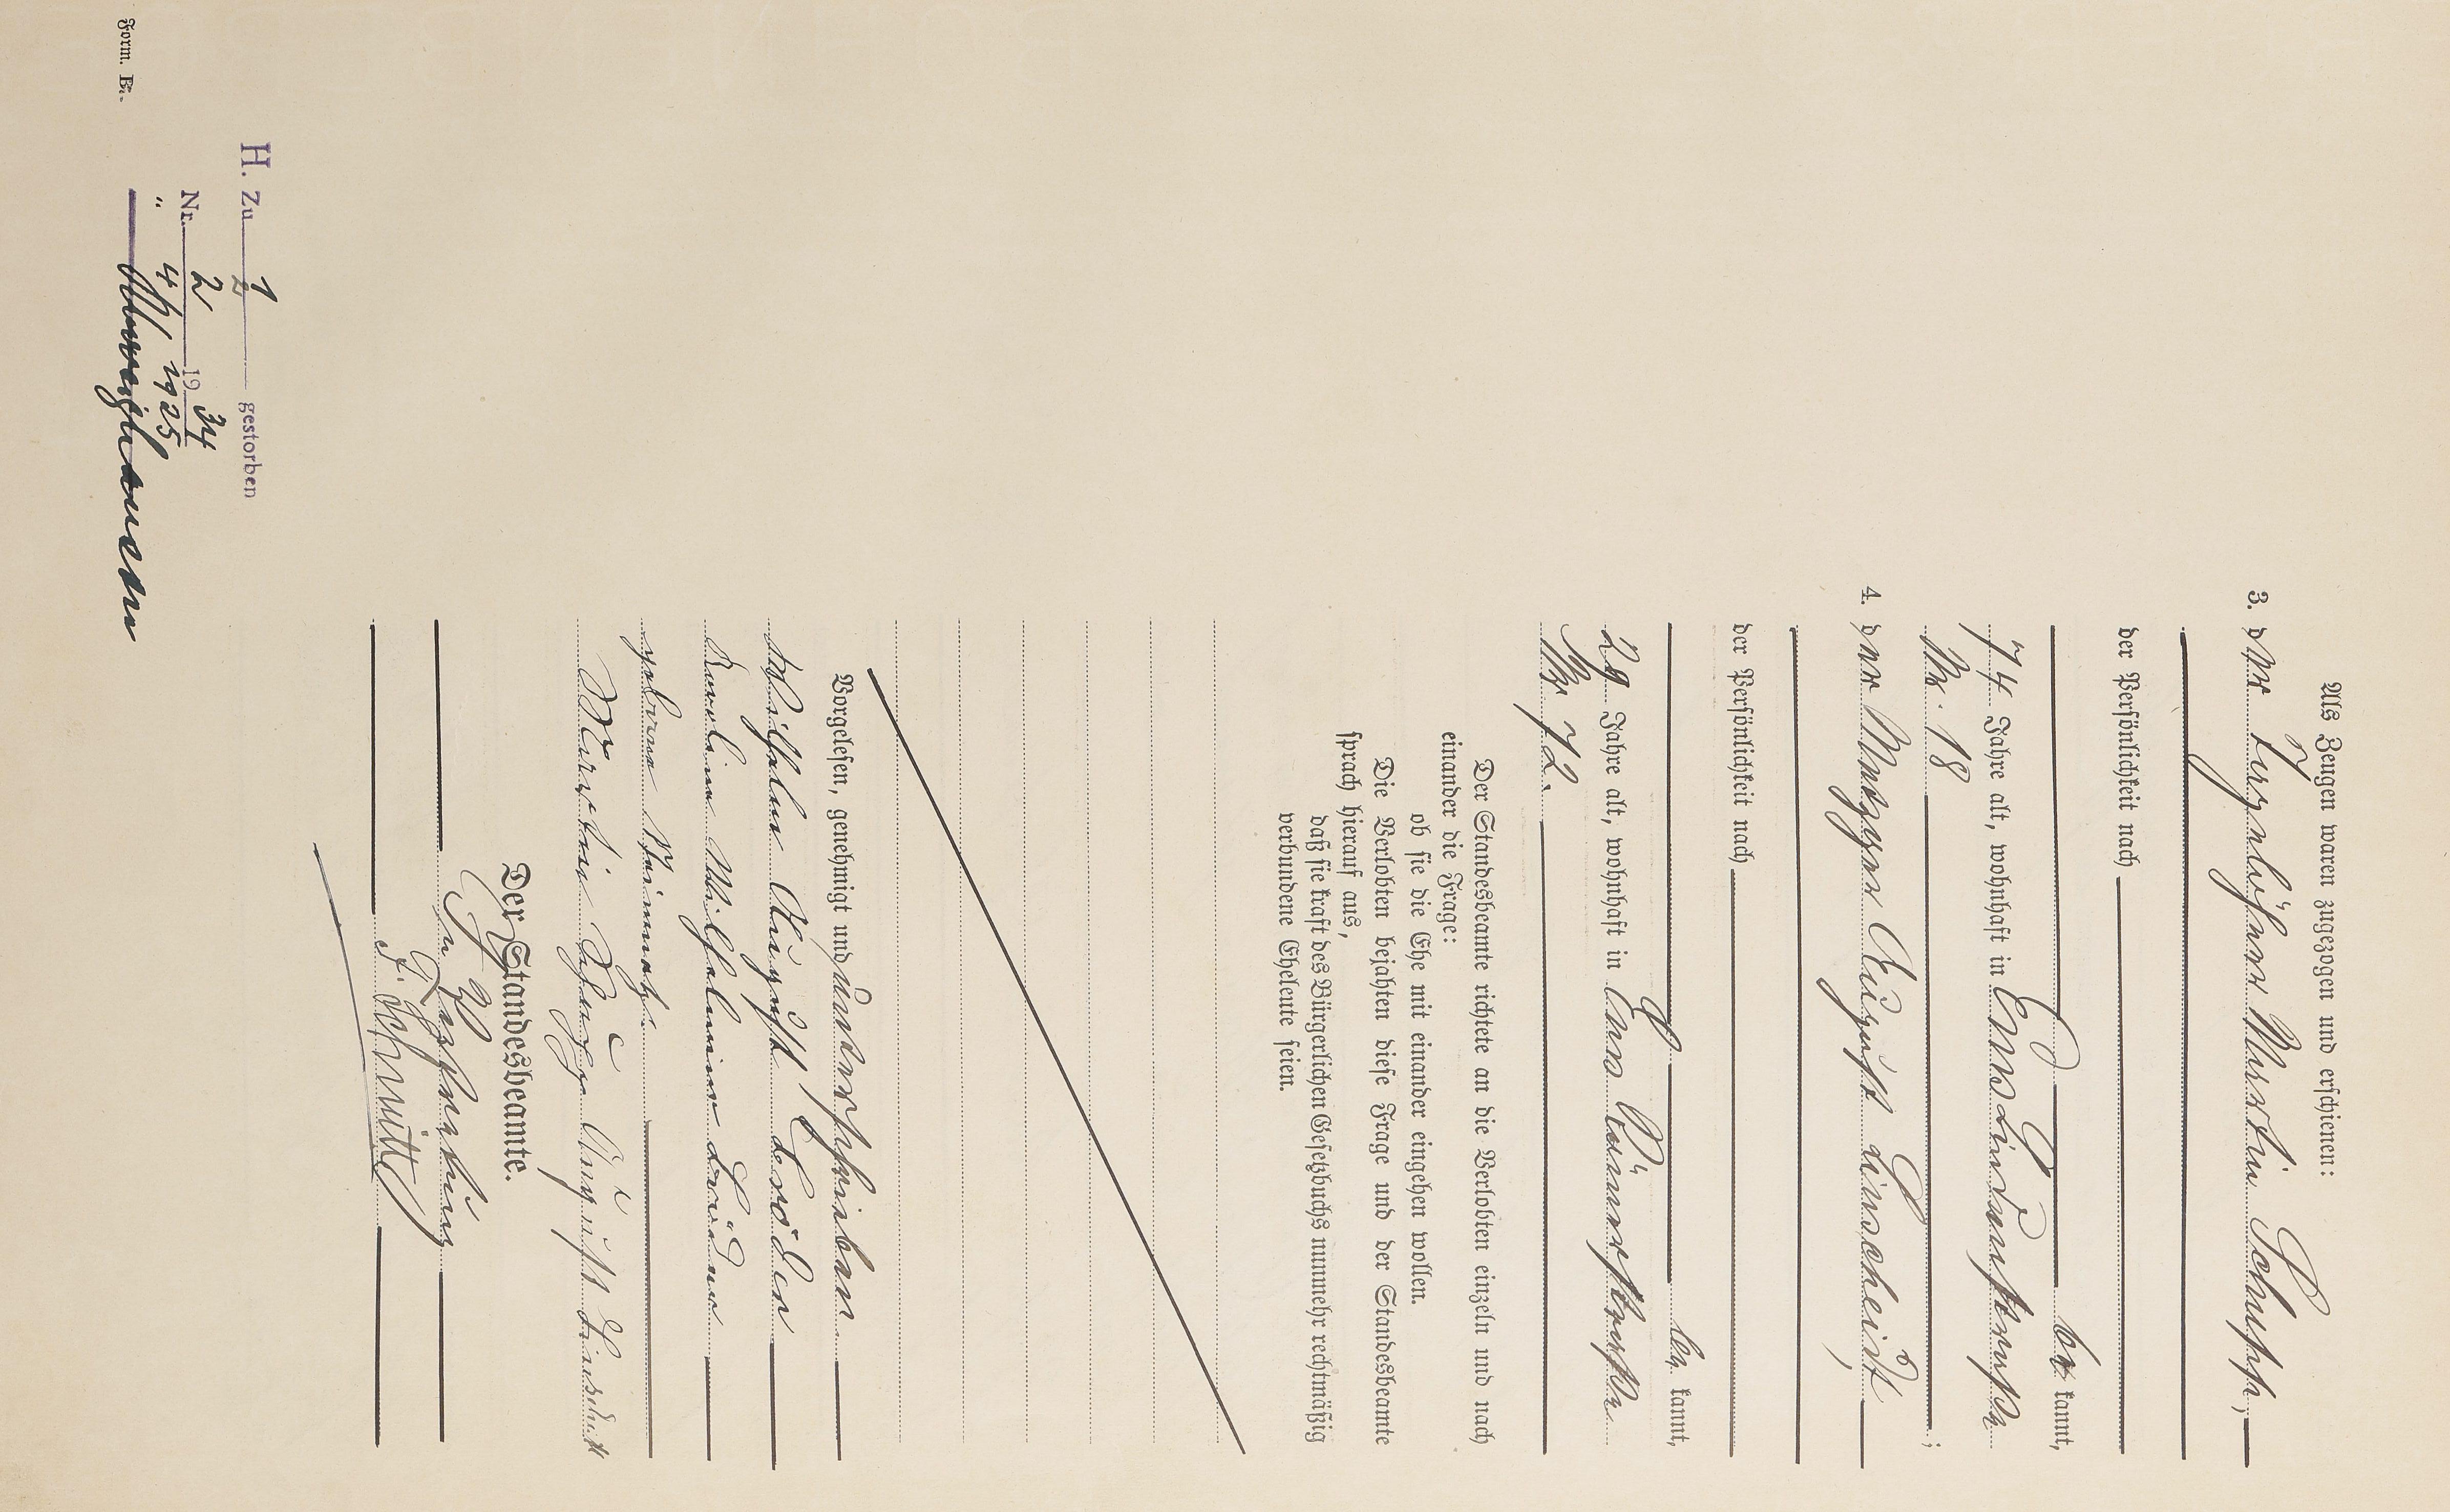 Als Zeugen waren zugezogen und erschienen:
3. der Tagelöhner Martin Schupp,
der Persönlichkeit nach
be kannt,
74 Jahre alt, wohnhaft in Ems Lindenstraße
Nr. 18 ;
4. der Metzger August Linscheidt,
der Persönlichkeit nach
be kannt,
29 Jahre alt, wohnhaft in Ems Römerstraße
Nr 72.
Der Standesbeamte richtete an die Verlobten einzeln und nach
einander die Frage:
ob sie die Ehe mit einander eingehen wollen.
Die Verlobten bejahten diese Frage und der Standesbeamte
sprach hierauf aus,
daß sie kraft des Bürgerlichen Gesetzbuchs nunmehr rechtmäßig
verbundene Eheleute seien.
Vorgelesen, genehmigt und unterschrieben
Wilhelm August
Wilhelmine
geborne
Martin Schupp August Linscheidt
Der Standesbeamte.
In Vertretung
Schmitt
H. Zu 1 gestorben
Nr. 2 19 34
" 4 1925
Form. B.